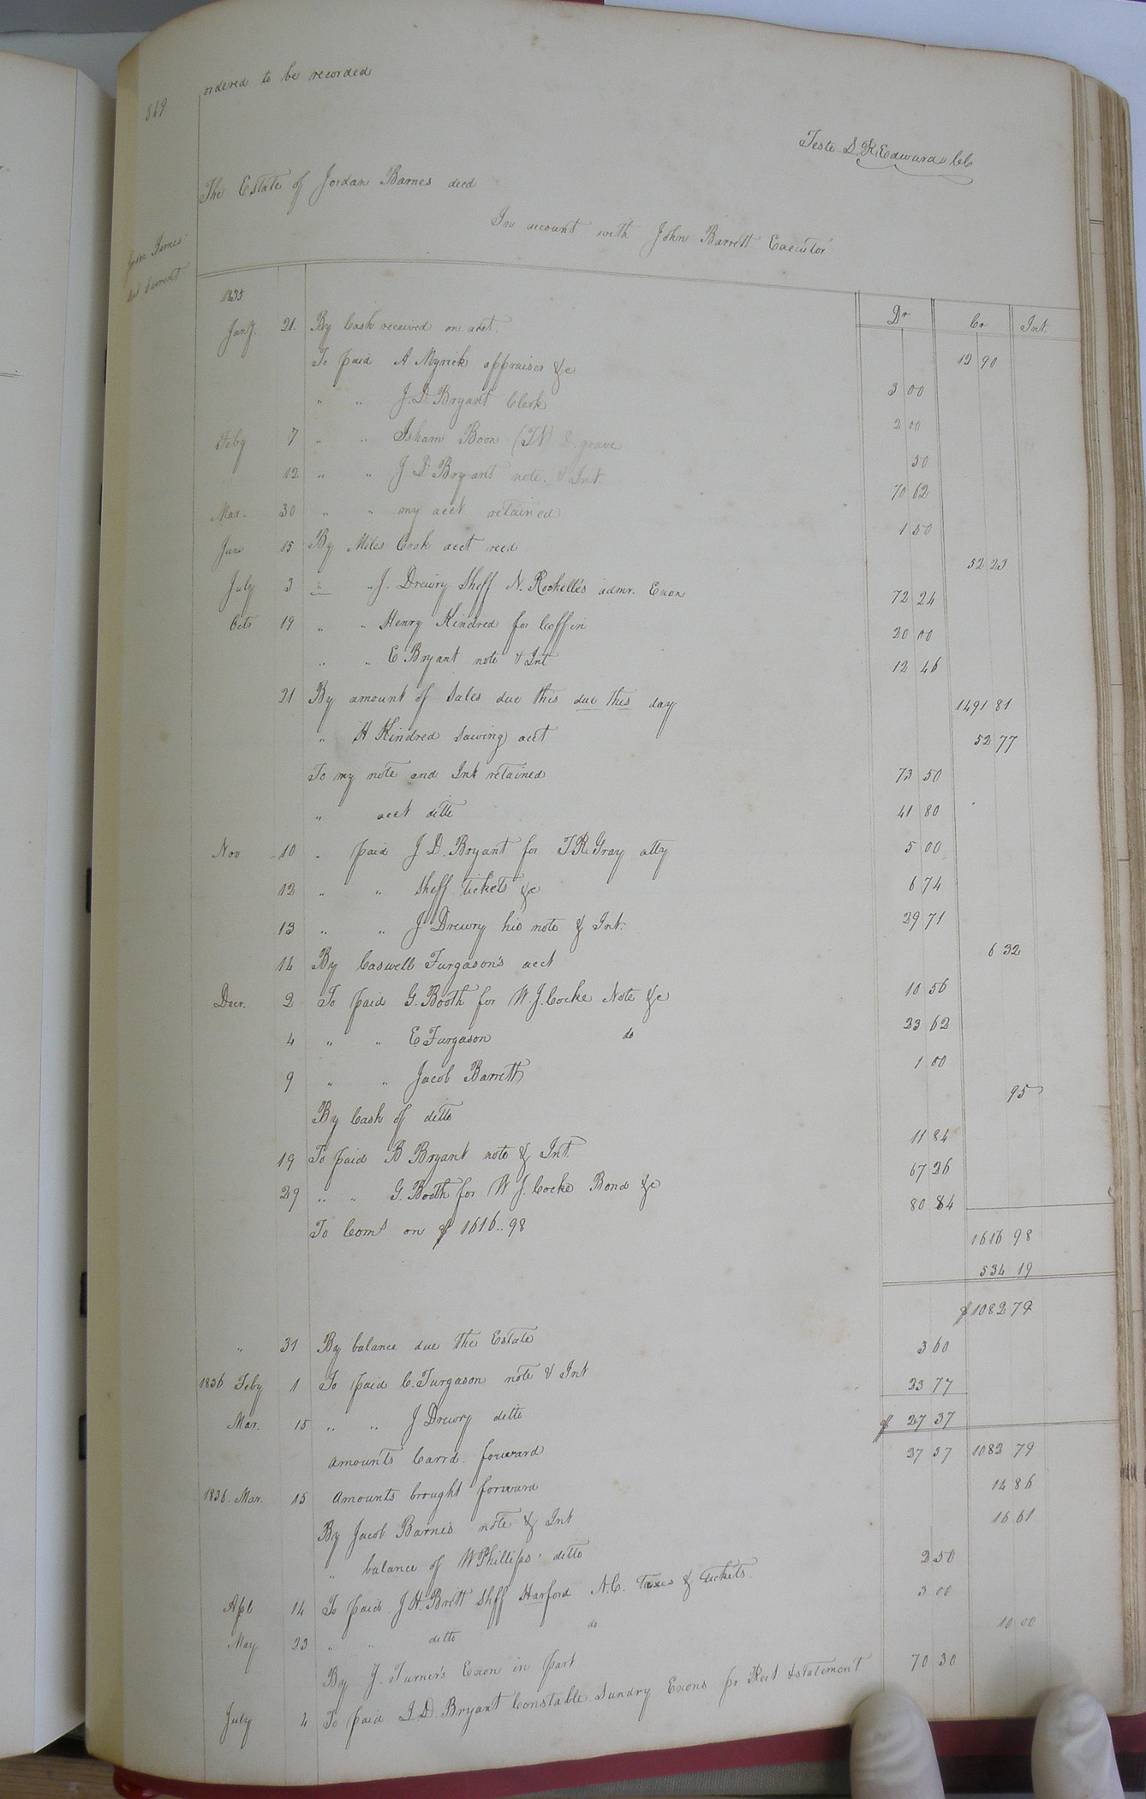 ordered to be recorded
569
Teste D. H. Edwards CC
The Estate of Jordan Barnes decd
In account with John Barrett Executor
Account
1835
Dr Cr Int.
Jany. 21. By Cash received on acct. 12 90
To paid A Myrick appraiser &c 3 00
" " J. D. Bryant Clerk 2 00
Feby 7 " " Isham Boon (FN) D. grave 50
12 " " J D Bryant note & Int 70 62
Mar. 30 " " my acct retained 1 50
June 15 By Miles Cook acct recd 52 23
July 3 " " J. Drewry Sheff N. Rochelle's admr. Exon 72 24
Octo 19 " " Henry Kindred for Coffin 20 00
" " E Bryant note & Int 12 46
21 By amount of Sales due this due this day 1491 81
" H Kindred Sawing acct 52 77
To my note and Int retained 73 50
" acct ditto 41 80
Nov 10 " paid J D. Bryant for T. R. Gray atty 5 00
12 " " Sheff tickets &c 6 74
13 " " J Drewry his note & Int. 29 71
14 By Caswell Furgason's acct 6 32
Decr. 2 To paid G. Booth for W. J. Cocke Note &c 10 56
4 " " E Furgason do 23 62
9 " " Jacob Barrett 1 00
By Cash of ditto 95
19 To paid B Bryant note & Int. 11 84
29 " " G. Booth for W J. Cocke Bond &c 67 26
To Coms on $ 1616..98 80 84
1616 98
534 19
$1082 79
" 31 By balance due the Estate
1836 Feby 1 To paid C. Furgason note & Int 3 60
Mar. 15 " " J Drewry ditto 23 77
$ 27 37
Amounts Carrd. forward 27 37 1082 79
1836. Mar. 15 Amounts brought forward
By Jacob Barnes note & Int 14 86
" balance of W Phillips' ditto 16 61
Apl 14 To paid J. H. Britt Shff Harford N.C. Taxes & tickets 2 50
May 23 " " ditto do 3 00
By J. Turner's Exon in part 10 00
July 4 To paid J. D. Bryant Constable Sundry Exons pr Rect & statement 70 30